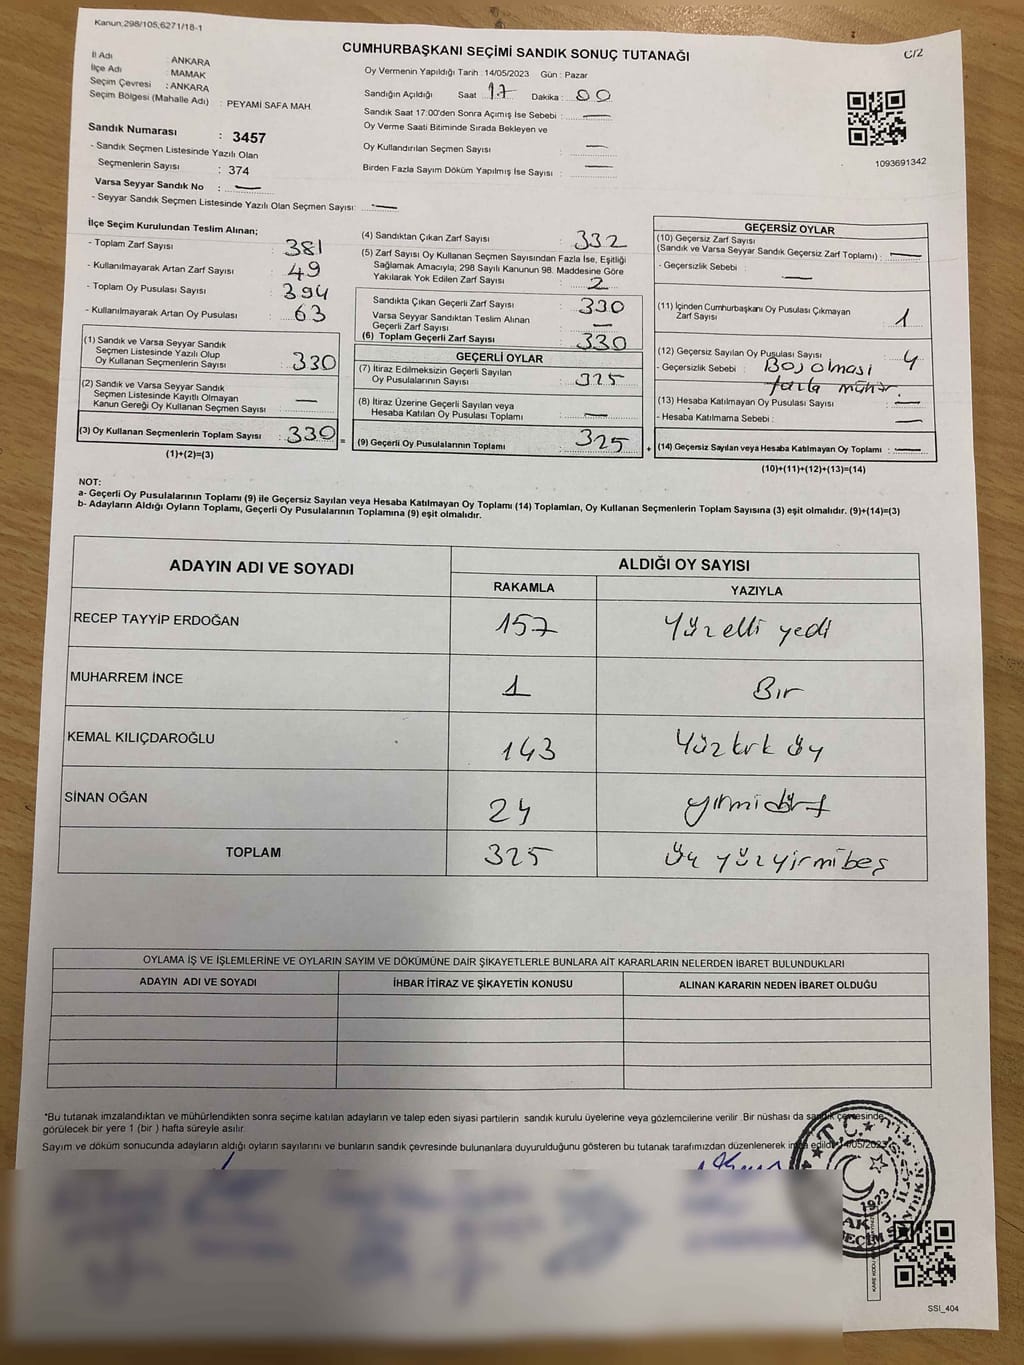 Kanun,298/105,6271/18-1
C/2
CUMHURBAŞKANI SEÇİMİ SANDIK SONUÇ TUTANAĞI
İl Adı : ANKARA
İlçe Adı : MAMAK
Seçim Çevresi : ANKARA
Seçim Bölgesi (Mahalle Adı) : PEYAMİ SAFA MAH.
Oy Vermenin Yapıldığı Tarih : 14/05/2023 Gün : Pazar
Sandığın Açıldığı Saat : 17 Dakika : 00
Sandık Saat 17:00'den Sonra Açımış İse Sebebi : —
Oy Verme Saati Bitiminde Sırada Bekleyen ve
Oy Kullandırılan Seçmen Sayısı : —
Birden Fazla Sayım Döküm Yapılmış İse Sayısı : —
1093691342
Sandık Numarası : 3457
- Sandık Seçmen Listesinde Yazılı Olan
Seçmenlerin Sayısı : 374
Varsa Seyyar Sandık No : —
- Seyyar Sandık Seçmen Listesinde Yazılı Olan Seçmen Sayısı: —
İlçe Seçim Kurulundan Teslim Alınan;
- Toplam Zarf Sayısı : 381
- Kullanılmayarak Artan Zarf Sayısı : 49
- Toplam Oy Pusulası Sayısı : 394
- Kullanılmayarak Artan Oy Pusulası : 63
(1) Sandık ve Varsa Seyyar Sandık
Seçmen Listesinde Yazılı Olup
Oy Kullanan Seçmenlerin Sayısı : 330
(2) Sandık ve Varsa Seyyar Sandık
Seçmen Listesinde Kayıtlı Olmayan
Kanun Gereği Oy Kullanan Seçmen Sayısı : —
(3) Oy Kullanan Seçmenlerin Toplam Sayısı : 330 =
(1)+(2)=(3)
(4) Sandıktan Çıkan Zarf Sayısı : 332
(5) Zarf Sayısı Oy Kullanan Seçmen Sayısından Fazla İse, Eşitliği
Sağlamak Amacıyla; 298 Sayılı Kanunun 98. Maddesine Göre
Yakılarak Yok Edilen Zarf Sayısı : 2
Sandıkta Çıkan Geçerli Zarf Sayısı : 330
Varsa Seyyar Sandıktan Teslim Alınan
Geçerli Zarf Sayısı : —
(6) Toplam Geçerli Zarf Sayısı : 330
GEÇERLİ OYLAR
(7) İtiraz Edilmeksizin Geçerli Sayılan
Oy Pusulalarının Sayısı : 325
(8) İtiraz Üzerine Geçerli Sayılan veya
Hesaba Katılan Oy Pusulası Toplamı : —
(9) Geçerli Oy Pusulalarının Toplamı : 325 +
GEÇERSİZ OYLAR
(10) Geçersiz Zarf Sayısı
(Sandık ve Varsa Seyyar Sandık Geçersiz Zarf Toplamı) : —
- Geçersizlik Sebebi : —
(11) İçinden Cumhurbaşkanı Oy Pusulası Çıkmayan
Zarf Sayısı : 1
(12) Geçersiz Sayılan Oy Pusulası Sayısı : 4
- Geçersizlik Sebebi : Boş olması
fazla mühür
(13) Hesaba Katılmayan Oy Pusulası Sayısı : —
- Hesaba Katılmama Sebebi : —
(14) Geçersiz Sayılan veya Hesaba Katılmayan Oy Toplamı : —
(10)+(11)+(12)+(13)=(14)
NOT:
a- Geçerli Oy Pusulalarının Toplamı (9) ile Geçersiz Sayılan veya Hesaba Katılmayan Oy Toplamı (14) Toplamları, Oy Kullanan Seçmenlerin Toplam Sayısına (3) eşit olmalıdır. (9)+(14)=(3)
b- Adayların Aldığı Oyların Toplamı, Geçerli Oy Pusulalarının Toplamına (9) eşit olmalıdır.
ADAYIN ADI VE SOYADI
ALDIĞI OY SAYISI
RAKAMLA YAZIYLA
RECEP TAYYİP ERDOĞAN 157 Yüz elli yedi
MUHARREM İNCE 1 Bir
KEMAL KILIÇDAROĞLU 143 Yüz kırk üç
SİNAN OĞAN 24 yirmi dört
TOPLAM 325 Üç yüz yirmi beş
OYLAMA İŞ VE İŞLEMLERİNE VE OYLARIN SAYIM VE DÖKÜMÜNE DAİR ŞİKAYETLERLE BUNLARA AİT KARARLARIN NELERDEN İBARET BULUNDUKLARI
ADAYIN ADI VE SOYADI İHBAR İTİRAZ VE ŞİKAYETİN KONUSU ALINAN KARARIN NEDEN İBARET OLDUĞU
*Bu tutanak imzalandıktan ve mühürlendikten sonra seçime katılan adayların ve talep eden siyasi partilerin sandık kurulu üyelerine veya gözlemcilerine verilir. Bir nüshası da sandık çevresinde
görülecek bir yere 1 (bir ) hafta süreyle asılır.
Sayım ve döküm sonucunda adayların aldığı oyların sayılarını ve bunların sandık çevresinde bulunanlara duyurulduğunu gösteren bu tutanak tarafımızdan düzenlenerek imza edildi. 14/05/2023
T.C.
1923
SSI_404